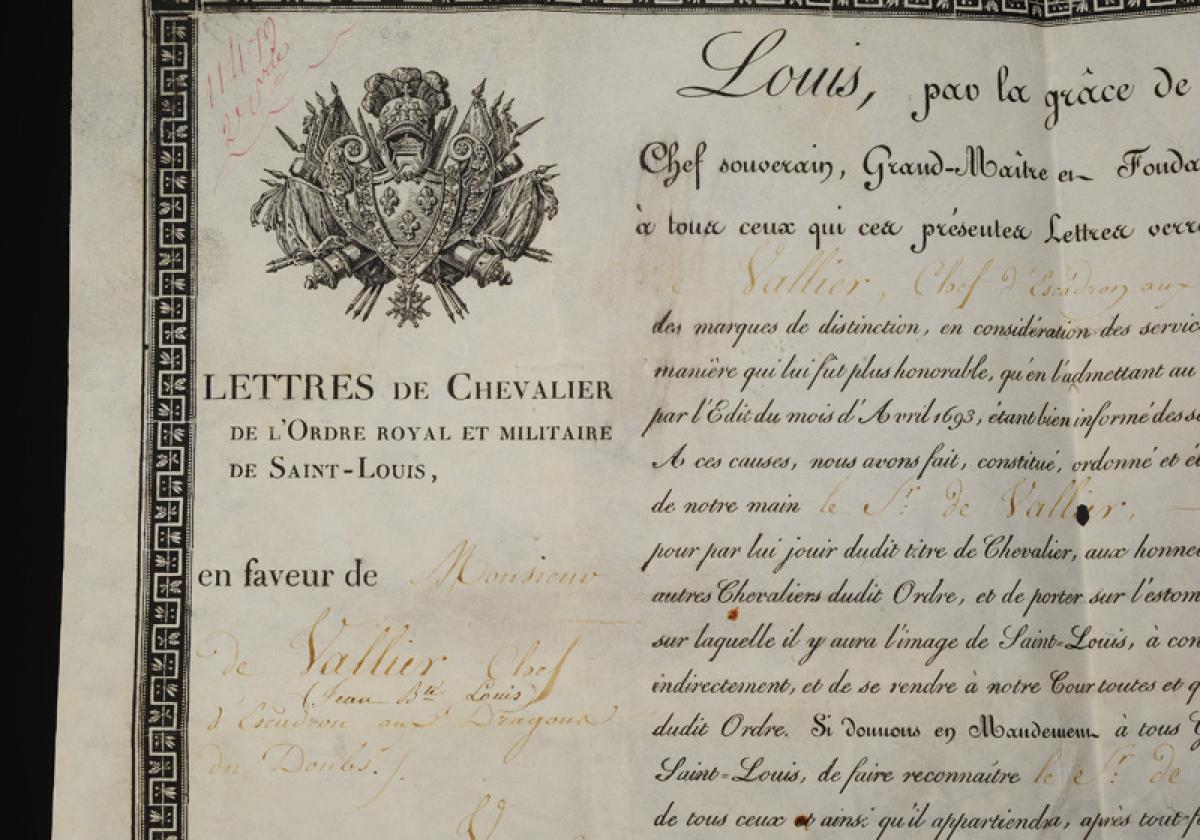 11479
LETTRES DE CHEVALIER
DE L'ORDRE ROYAL ET MILITAIRE
DE SAINT-LOUIS,
en faveur de Monsieur
de Vallier Chef
(Jean Bte Louis)
d'Escadron aux Dragons
du Doubs.
Louis, par la grâce de
Chef souverain, Grand-Maître et Fonda
à tous ceux qui ces présentes Lettres verr
de Vallier, Chef d'Escadron aux
des marques de distinction, en considération des servic
manière qui lui fût plus honorable, qu'en l'admettant au
par l'Edit du mois d'Avril 1693, étant bien informé des s
A ces causes, nous avons fait, constitué, ordonné et é
de notre main le Sr. de Vallier,
pour par lui jouir dudit titre de Chevalier, aux honne
autres Chevaliers dudit Ordre, et de porter sur l'estom
sur laquelle il y aura l'image de Saint-Louis, à con
indirectement, et de se rendre à notre Cour toutes et q
dudit Ordre. Si donnons en Mandement à tous
Saint-Louis, de faire reconnaître le Sr. de
de tous ceux et ainsi qu'il appartiendra, après tout